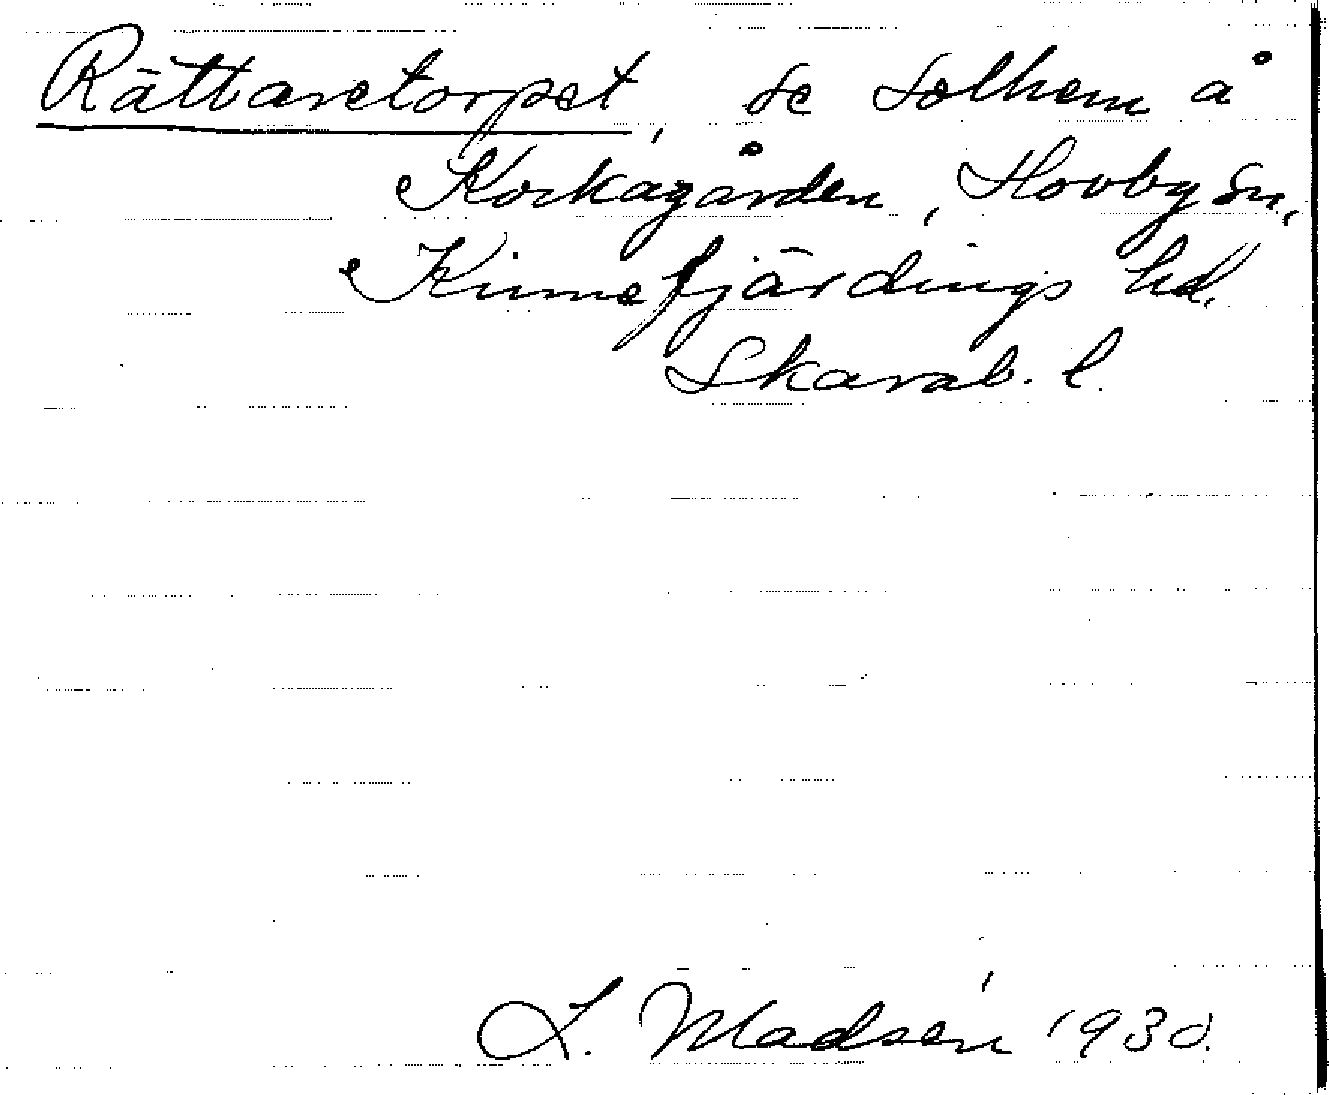 Rättaretorpet, se Solhem å
Korkagården, Hovby sn,
Kinnefjärdings hd.
Skarab. l.
L. Madsén 1930.